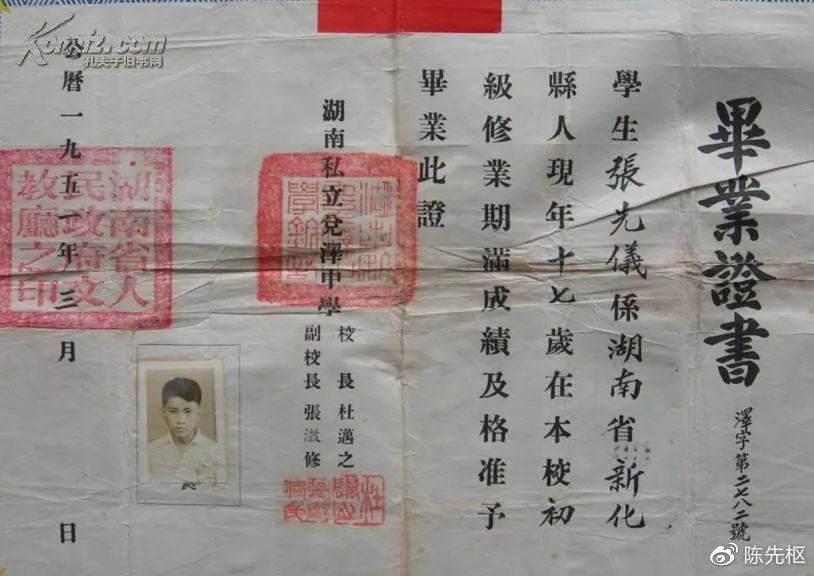 畢業證書
澤字第二七八二號
學生張先儀係湖南省新化
縣人現年十七歲在本校初
級修業期滿成績及格准予
畢業此證
湖南私立兌澤中學
校長杜邁之
副校長張澂修
公曆一九五一年三月 日
湖南省人
民政府文
教廳之印
Kongfz.com
孔夫子旧书网
陈先枢